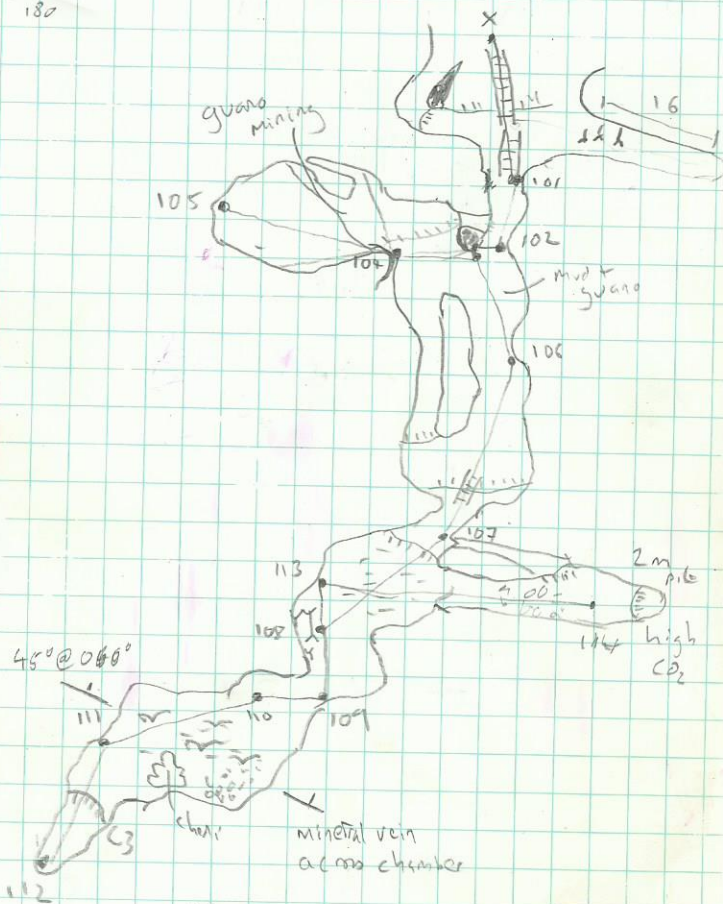 180
X
16
guano
mining
101
105
102
104
mud +
guano
106
107
113
2m
pit
108
114
high
CO2
111
110
109
C3
mineral vein
across chamber
112